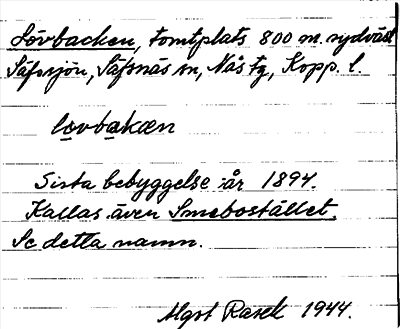 Lövbacken, tomtplats 800 m. sydväst
Säfssjön, Säfsnäs sn, Nås tg, Kopp. l.
lövbakæn
Sista bebyggelse år 1894.
Kallas även Smebostället.
Se detta namn.
1944.